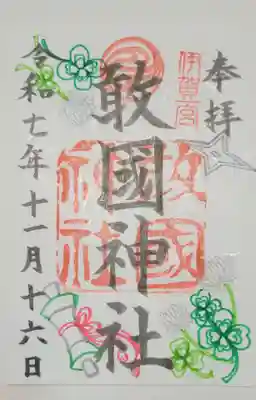 奉拝
伊賀一宮
敢國神社
敢國神社
令和七年十一月十六日